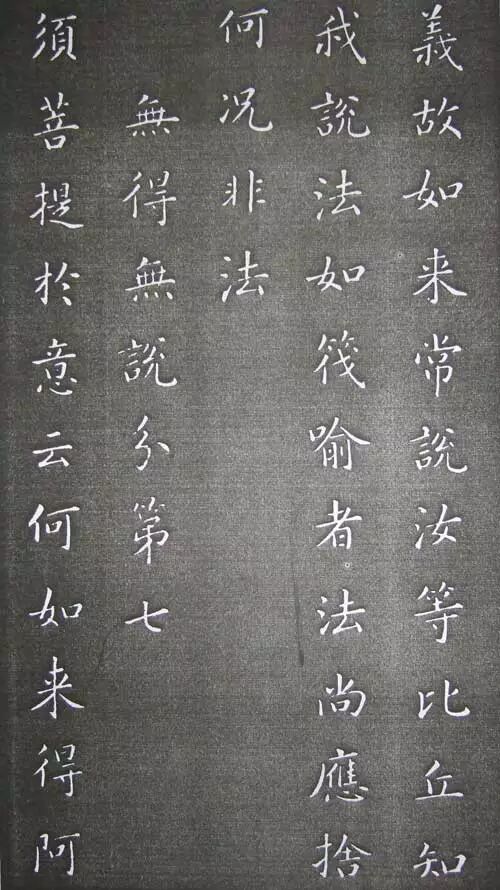 義故如来常說汝等比丘知
我說法如筏喻者法尚應捨
何况非法
無得無說分第七
須菩提於意云何如来得阿